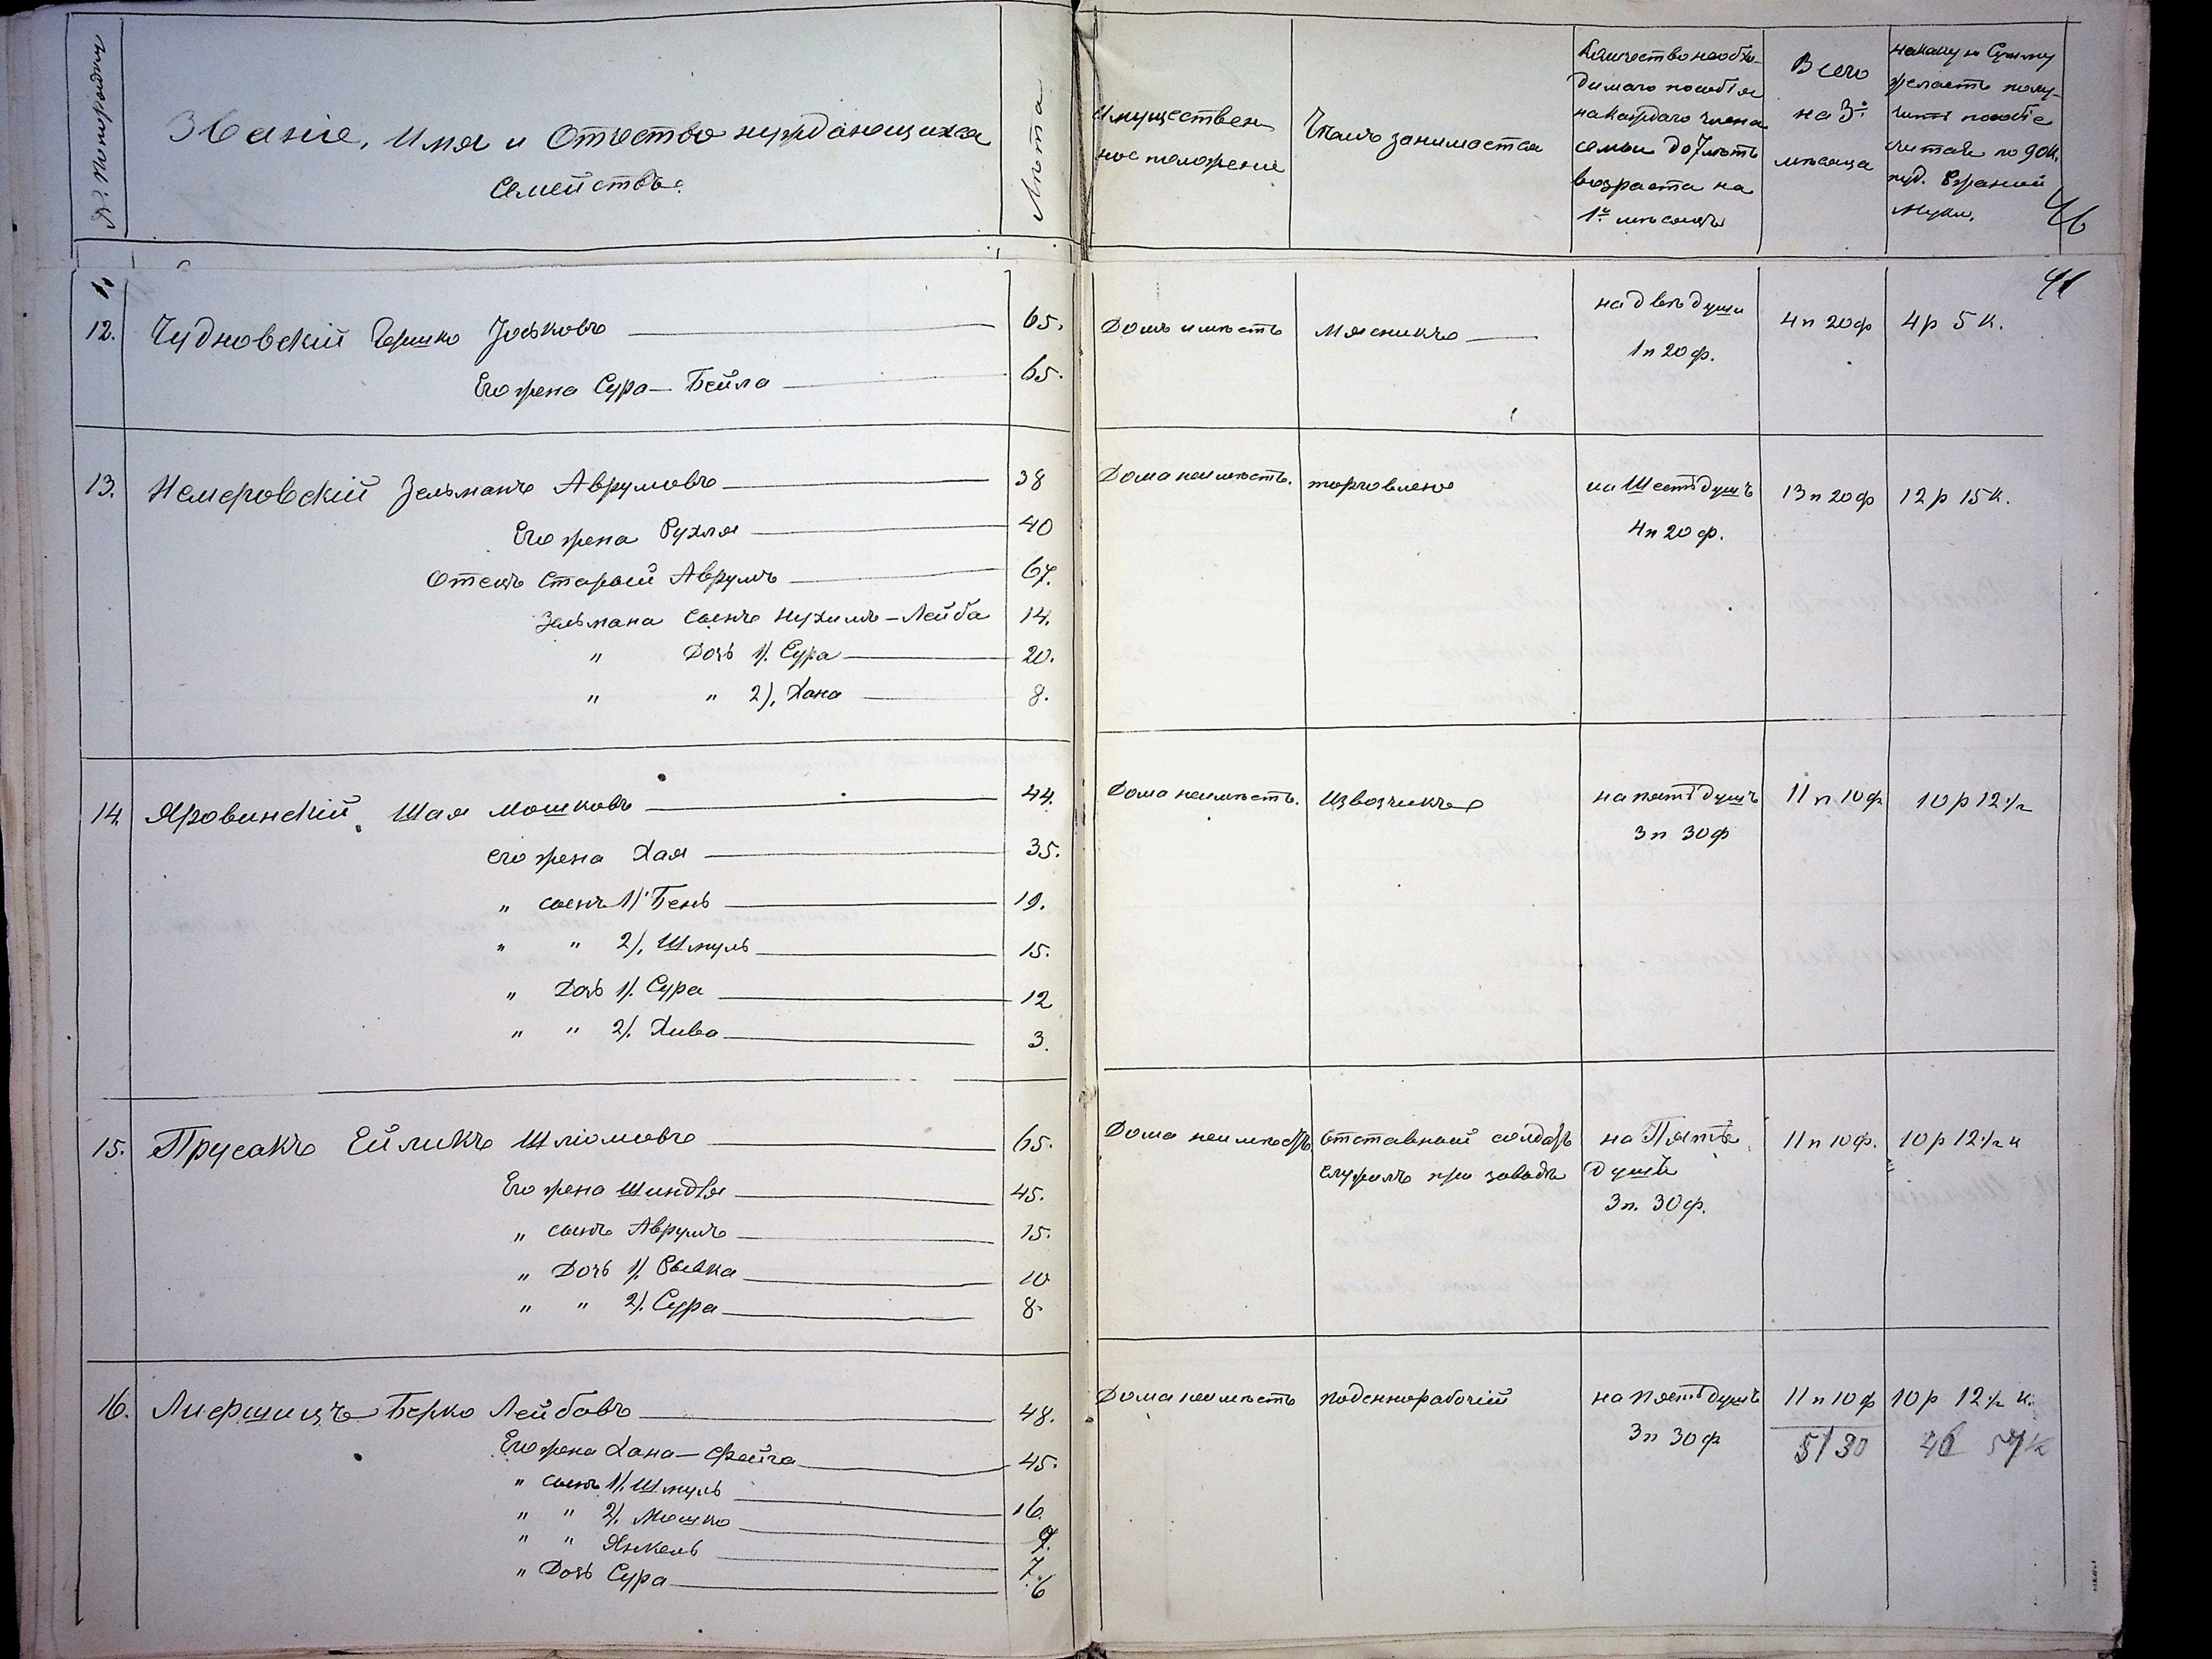 Званіе, Имя и Отчество нуждающихся
Семействъ.
Лѣта
Имуществен
ное положеніе
Чѣмъ занимается
Количество необхо-
димаго пособія
на каждаго члена
семьи до 7 лѣтъ
возраста на
1й мѣсяцъ
Всего
на 3
мѣсяца
на какую сумму
желаетъ полу-
чить пособіе
считая по 90 к.
пуд. Ржаной
муки.
46
12. Чудновскій Гершко Іоськовъ 65. Домъ имѣетъ Мясникъ на двѣ души 4 п 20 ф 4 р 5 к.
1 п 20 ф.
Его жена Сура-Бейла 65.
13. Немеровскій Зельманъ Аврумовъ 38 Дома неимѣетъ. торговлею на Шесть душъ 13 п 20 ф 12 р 15 к.
Его жена Рухля 40 4 п 20 ф.
Отецъ старый Аврумъ 67.
Зельмана сынъ Нухимъ-Лейба 14.
" Дочь 1). Сура 20.
" " 2). Хана 8.
14. Яровинскій Шая Мошковъ 44. Дома неимѣетъ. Извозчикъ на пять душъ 11 п 10 ф 10 р 12 ½
3 п 30 ф
его жена Хая 35.
" сынъ 1) Бень 19.
" " 2). Шмуль 15.
" Дочь 1). Сура 12
" " 2). Хива 3.
15. Прусакъ Ейликъ Шліомовъ 65. Дома неимѣетъ Отставный солдатъ на Пять 11 п 10 ф. 10 р 12 ½ к
служилъ при заводѣ душъ
Его жена Шиндля 45. 3 п. 30 ф.
" сынъ Аврумъ 15.
" Дочь 1). Рывка 10
" " 2). Сура 8.
16. Лифшицъ Берко Лейбовъ 48. Дома неимѣетъ поденнорабочій на пять душъ 11 п 10 ф 10 р 12 ½ к.
3 п 30 ф 51 30
Его жена Хана-Фейга 45.
" сынъ 1). Шмуль 16.
" " 2). Мошко 9.
" " Янкель 7.
" Дочь Сура 6